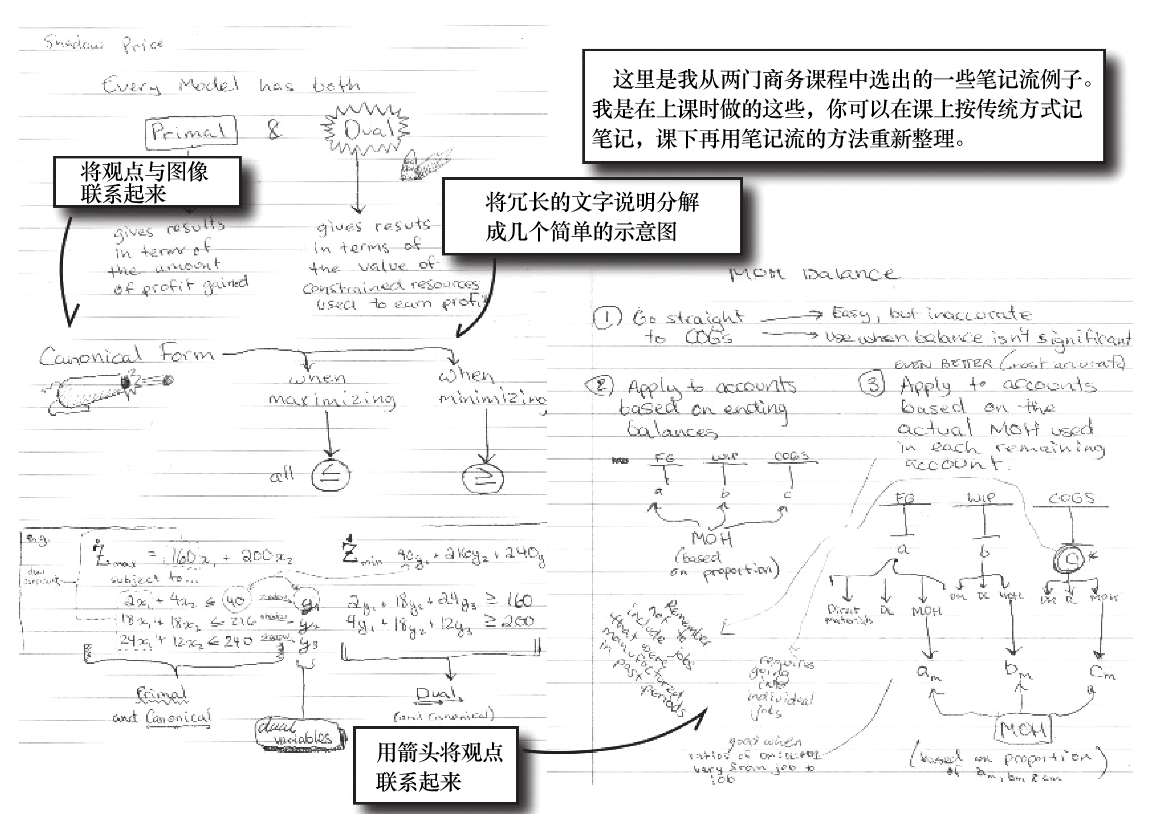 Shadow Price
Every Model has both
Primal & Dual
将观点与图像
联系起来
gives results
in terms of
the amount
of profit gained
gives resuts
in terms of
the value of
constrained resources
used to earn profit
Canonical Form
when
maximizing
when
minimizing
all ≤ ≥
e.g.
Z max = 160x₁ + 200x₂
subject to...
2x₁ + 4x₂ ≤ 40 y₁
18x₁ + 18x₂ ≤ 216 shadow y₂
24x₁ + 12x₂ ≤ 240 shadow y₃
Primal
and Canonical
dual
variables
Z min 40y₁ + 216y₂ + 240y
2y₁ + 18y₂ + 24y₃ ≥ 160
4y₁ + 18y₂ + 12y₃ ≥ 200
Dual
(and canonical)
这里是我从两门商务课程中选出的一些笔记流例子。
我是在上课时做的这些，你可以在课上按传统方式记
笔记，课下再用笔记流的方法重新整理。
将冗长的文字说明分解
成几个简单的示意图
MOH Balance
1 Go straight
to COGS
Easy, but inaccurate
use when balance isn't significant
2 Apply to accounts
based on ending
balances
FG WIP COGS
a b c
MOH
(based
on proportion)
EVEN BETTER (most accurate)
3 Apply to accounts
based on the
actual MOH used
in each remaining
account.
FG WIP COGS
a b c
Direct
materials
DL MOH
DM DL MOH
DM DL MOH
aₘ bₘ cₘ
MOH
(based on proportion
of aₘ, bₘ & cₘ)
Remember
not to
include jobs
that were
manufactured
in past
periods
requires
going
into
individual
jobs
good when
very from job to
job
用箭头将观点
联系起来